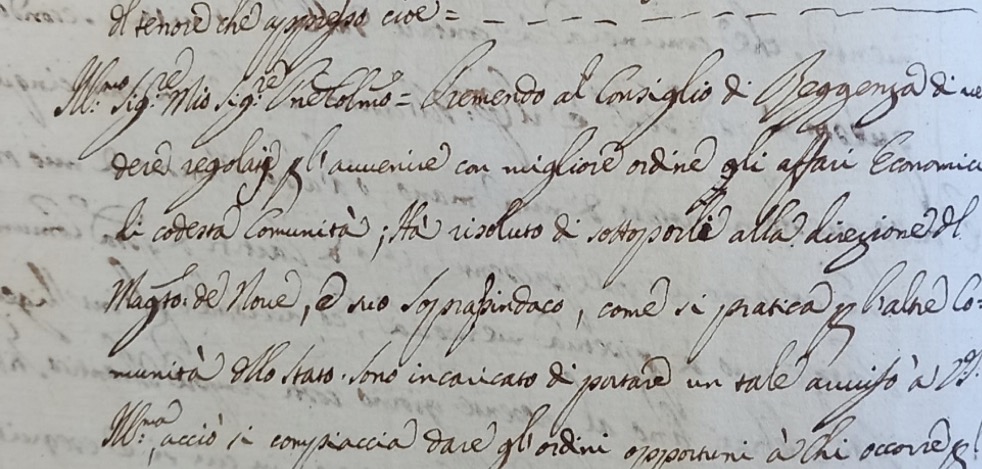 di tenore che appresso cioè =
Ill:mo Sig:re Mio Sig:re Pne Col:mo = Premendo al Consiglio di Reggenza di ve
dere regolarsi p l'avvenire con migliore ordine gli affari Economici
di codesta Comunità; Hà risoluto di sottoporli alla direzione dl
Mag:to: de Nove, e suo Soprasindaco, come si pratica p l'altre Co=
munità dllo Stato. Sono incaricato di portare un tale avviso à VS.
Ill:ma, acciò si compiaccia dare gl'ordini opportuni à chi occorre p